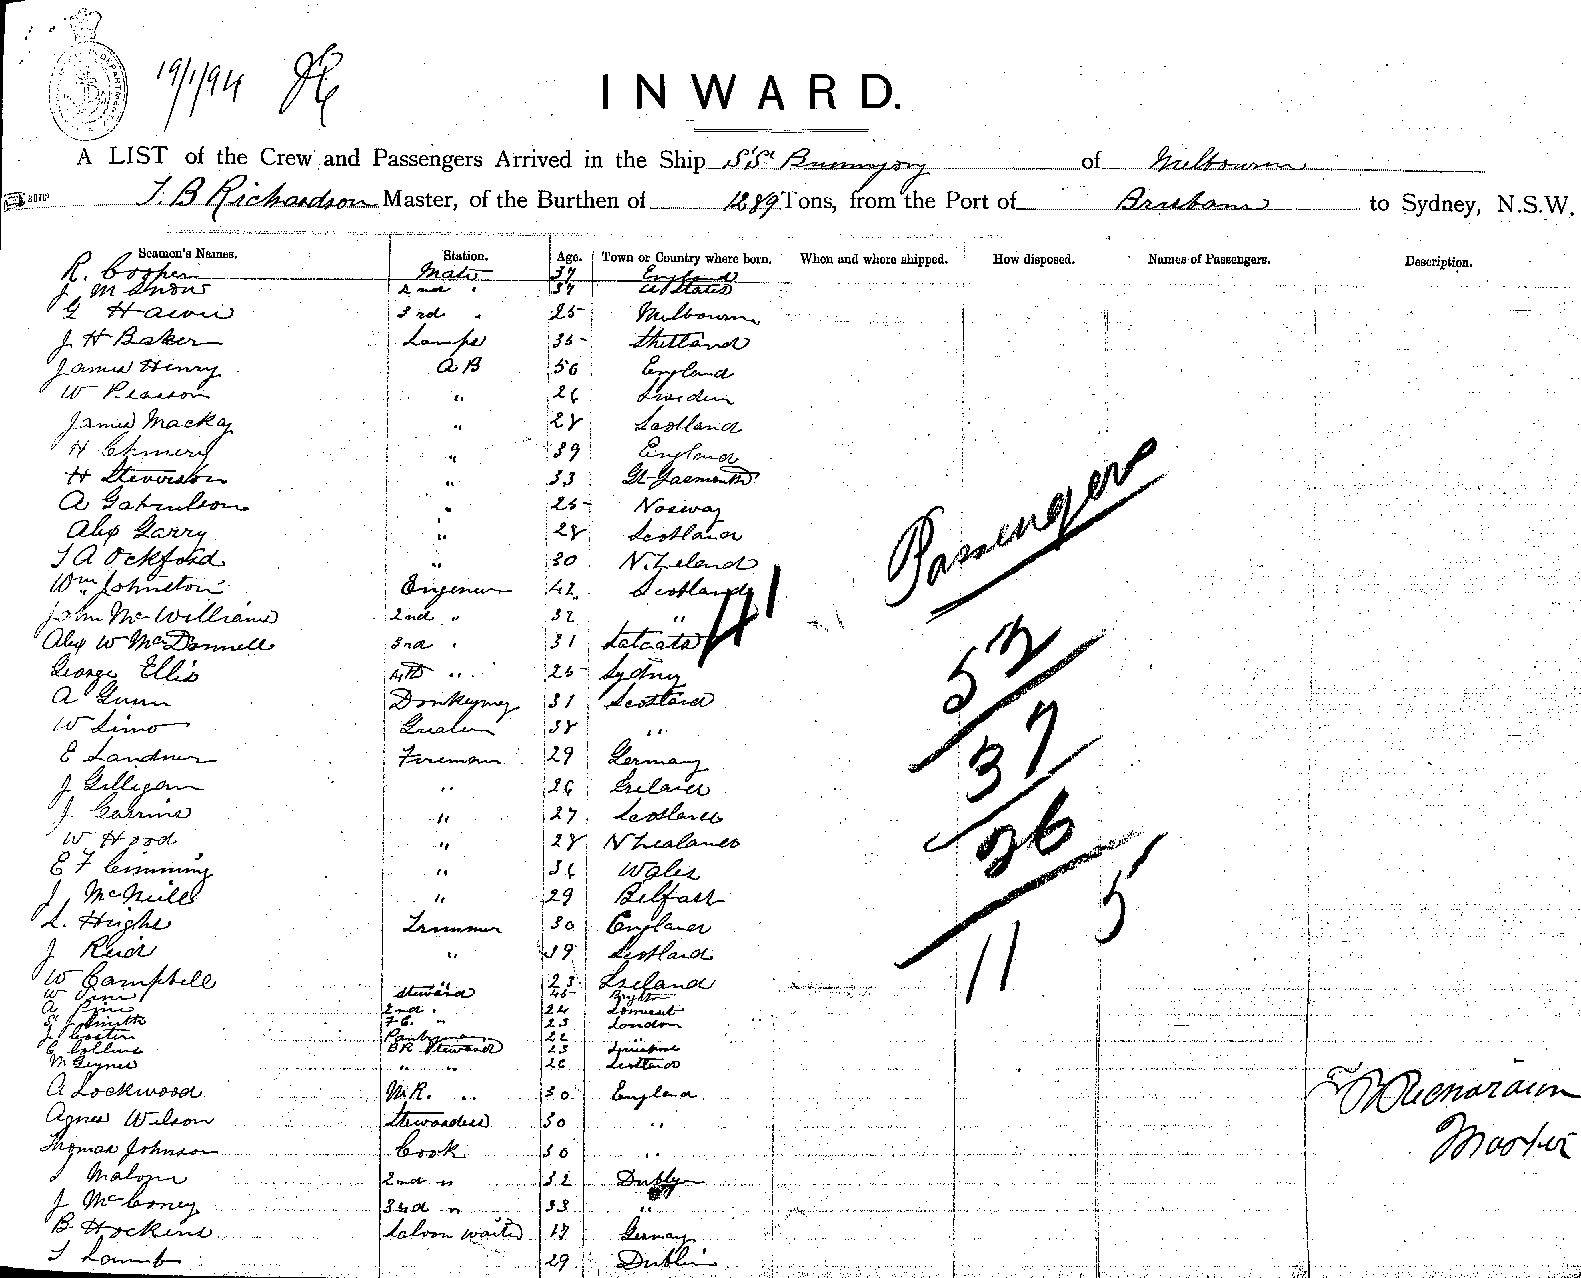 19/1/94
INWARD.
A LIST of the Crew and Passengers Arrived in the Ship S'S' Buninyong of Melbourne
T. B Richardson Master, of the Burthen of 1289 Tons, from the Port of Brisbane to Sydney, N.S.W.
Seamen's Names. Station. Age. Town or Country where born. When and where shipped. How disposed. Names of Passengers. Description.
R. Cooper Mate 37 England
J. M Snow 2nd " 37 U States
G 3rd " 25 Melbourne
J. H Baker Lamps 35 Shetland
James Henry A B 56 England
W Pearson " 26 Sweden
James Mackay " 28 Scotland
H " 39 England
H Stevenson " 33 Gt Yarmouth
A Gabrielson " 25 Norway
Alex Garry " 28 Scotland
T A Ockford " 30 N. Zeland
Wm Johnston Engineer 42 Scotland
John McWilliams 2nd " 32 "
Alex W McDonnell 3rd " 31
George Ellis 4th " 25 Sydney
A Gunn Donkeyman 31 Scotland
W Sims Greaser 38 "
E Landner Fireman 29 Germany
J Gilligan " 26 Ireland
J. " 27 Scotland
W Hood " 28 N Zealand
E F Cimming " 36 Wales
J McNeill " 29 Belfast
L. Hughes Trimmer 30 England
J Reid " 39 Scotland
W Campbell " 23 Ireland
W Steward 45
A 2nd " 24 Somerset
23 London
Pantryman 22
C Collins BR Steward 23
M " " 26 Scotland
A Lockwood M.R. " 30 England
Agnes Wilson Stewardess 30 "
Thomas Johnson Cook 30 "
Malone 2nd " 32 Dublin
J McConey 3rd " 33 "
B Hockins Saloon waiter 18 Germany
T Lamb 29 Dublin
41
Passengers
52
37
36
11 5
T B Richardson
Master